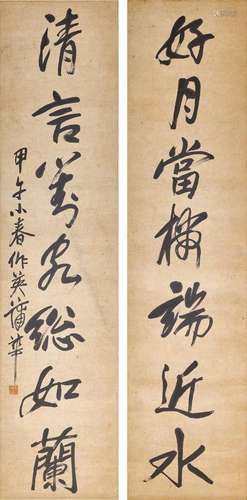 好月當樓端近水
清言對客總如蘭
甲午小春作英蒲華